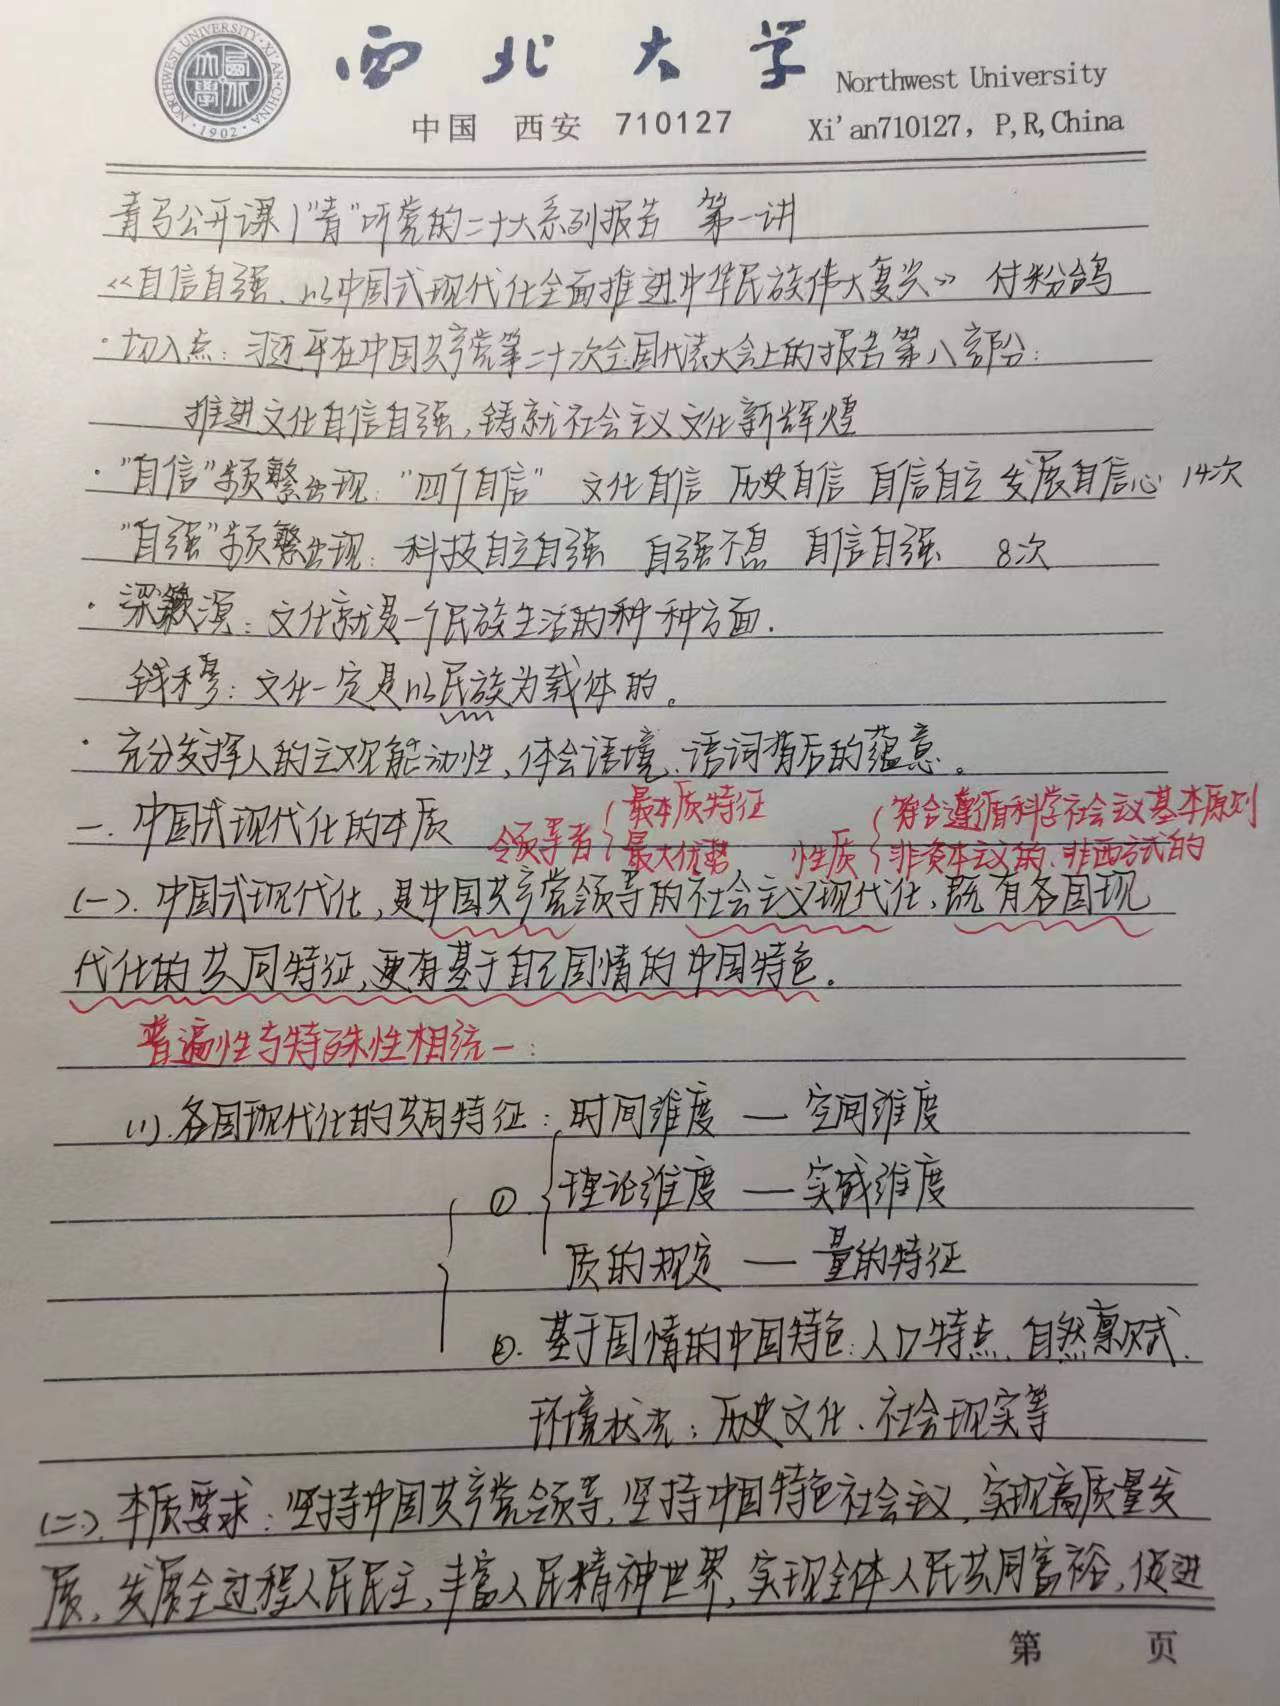 西北大学 Northwest University
中国 西安 710127 Xi'an710127, P,R,China
NORTHWEST UNIVERSITY·XI'AN·CHINA
·1902·
青马公开课|"青"听党的二十大系列报告 第一讲
《自信自强、以中国式现代化全面推进中华民族伟大复兴》 付粉鸽
·切入点:习近平在中国共产党第二十次全国代表大会上的报告第八部分:
推进文化自信自强,铸就社会主义文化新辉煌
·"自信"频繁出现:"四个自信" 文化自信 历史自信 自信自立 发展自信心 14次
"自强"频繁出现:科技自立自强 自强不息 自信自强 8次
·梁漱溟:文化就是一个民族生活的种种方面.
钱穆:文化一定是以民族为载体的。
·充分发挥人的主观能动性,体会语境、语词背后的蕴意。
一.中国式现代化的本质 领导者{最本质特征 性质{符合遵循科学社会主义基本原则
最大优势 非资本主义的、非西方式的
(一).中国式现代化,是中国共产党领导的社会主义现代化,既有各国现
代化的共同特征,更有基于自己国情的中国特色。
普遍性与特殊性相统一:
(1).各国现代化的共同特征:时间维度 — 空间维度
① 理论维度 — 实践维度
质的规定 — 量的特征
②.基于国情的中国特色:人口特点、自然禀赋、
环境状况;历史文化、社会现实等
(二).本质要求:坚持中国共产党领导,坚持中国特色社会主义,实现高质量发
展,发展全过程人民民主,丰富人民精神世界,实现全体人民共同富裕,促进
第 页